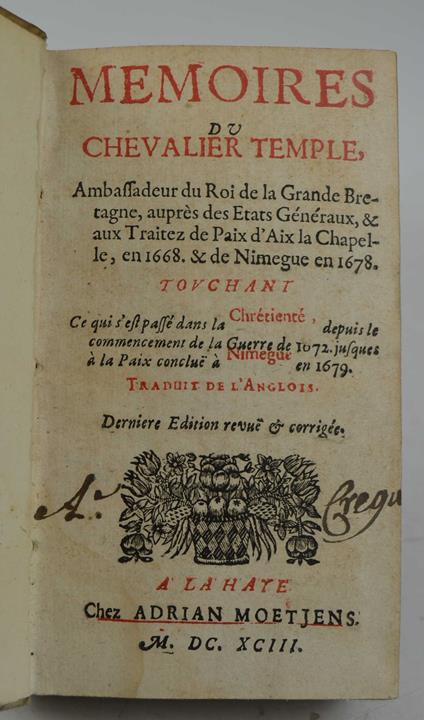 MEMOIRES
DV
CHEVALIER TEMPLE,
Ambaſſadeur du Roi de la Grande Bre-
tagne, auprès des Etats Généraux, &
aux Traitez de Paix d'Aix la Chapel-
le, en 1668. & de Nimegue en 1678.
TOVCHANT
Ce qui s'eſt paſſé dans la Chrétienté, depuis le
commencement de la Guerre de 1672. juſques
à la Paix concluë à Nimegue en 1679.
TRADUIT DE L'ANGLOIS.
Derniere Edition revuë & corrigée.
A. Crequ
A LA HAYE
Chez ADRIAN MOETJENS.
M. DC. XCIII.